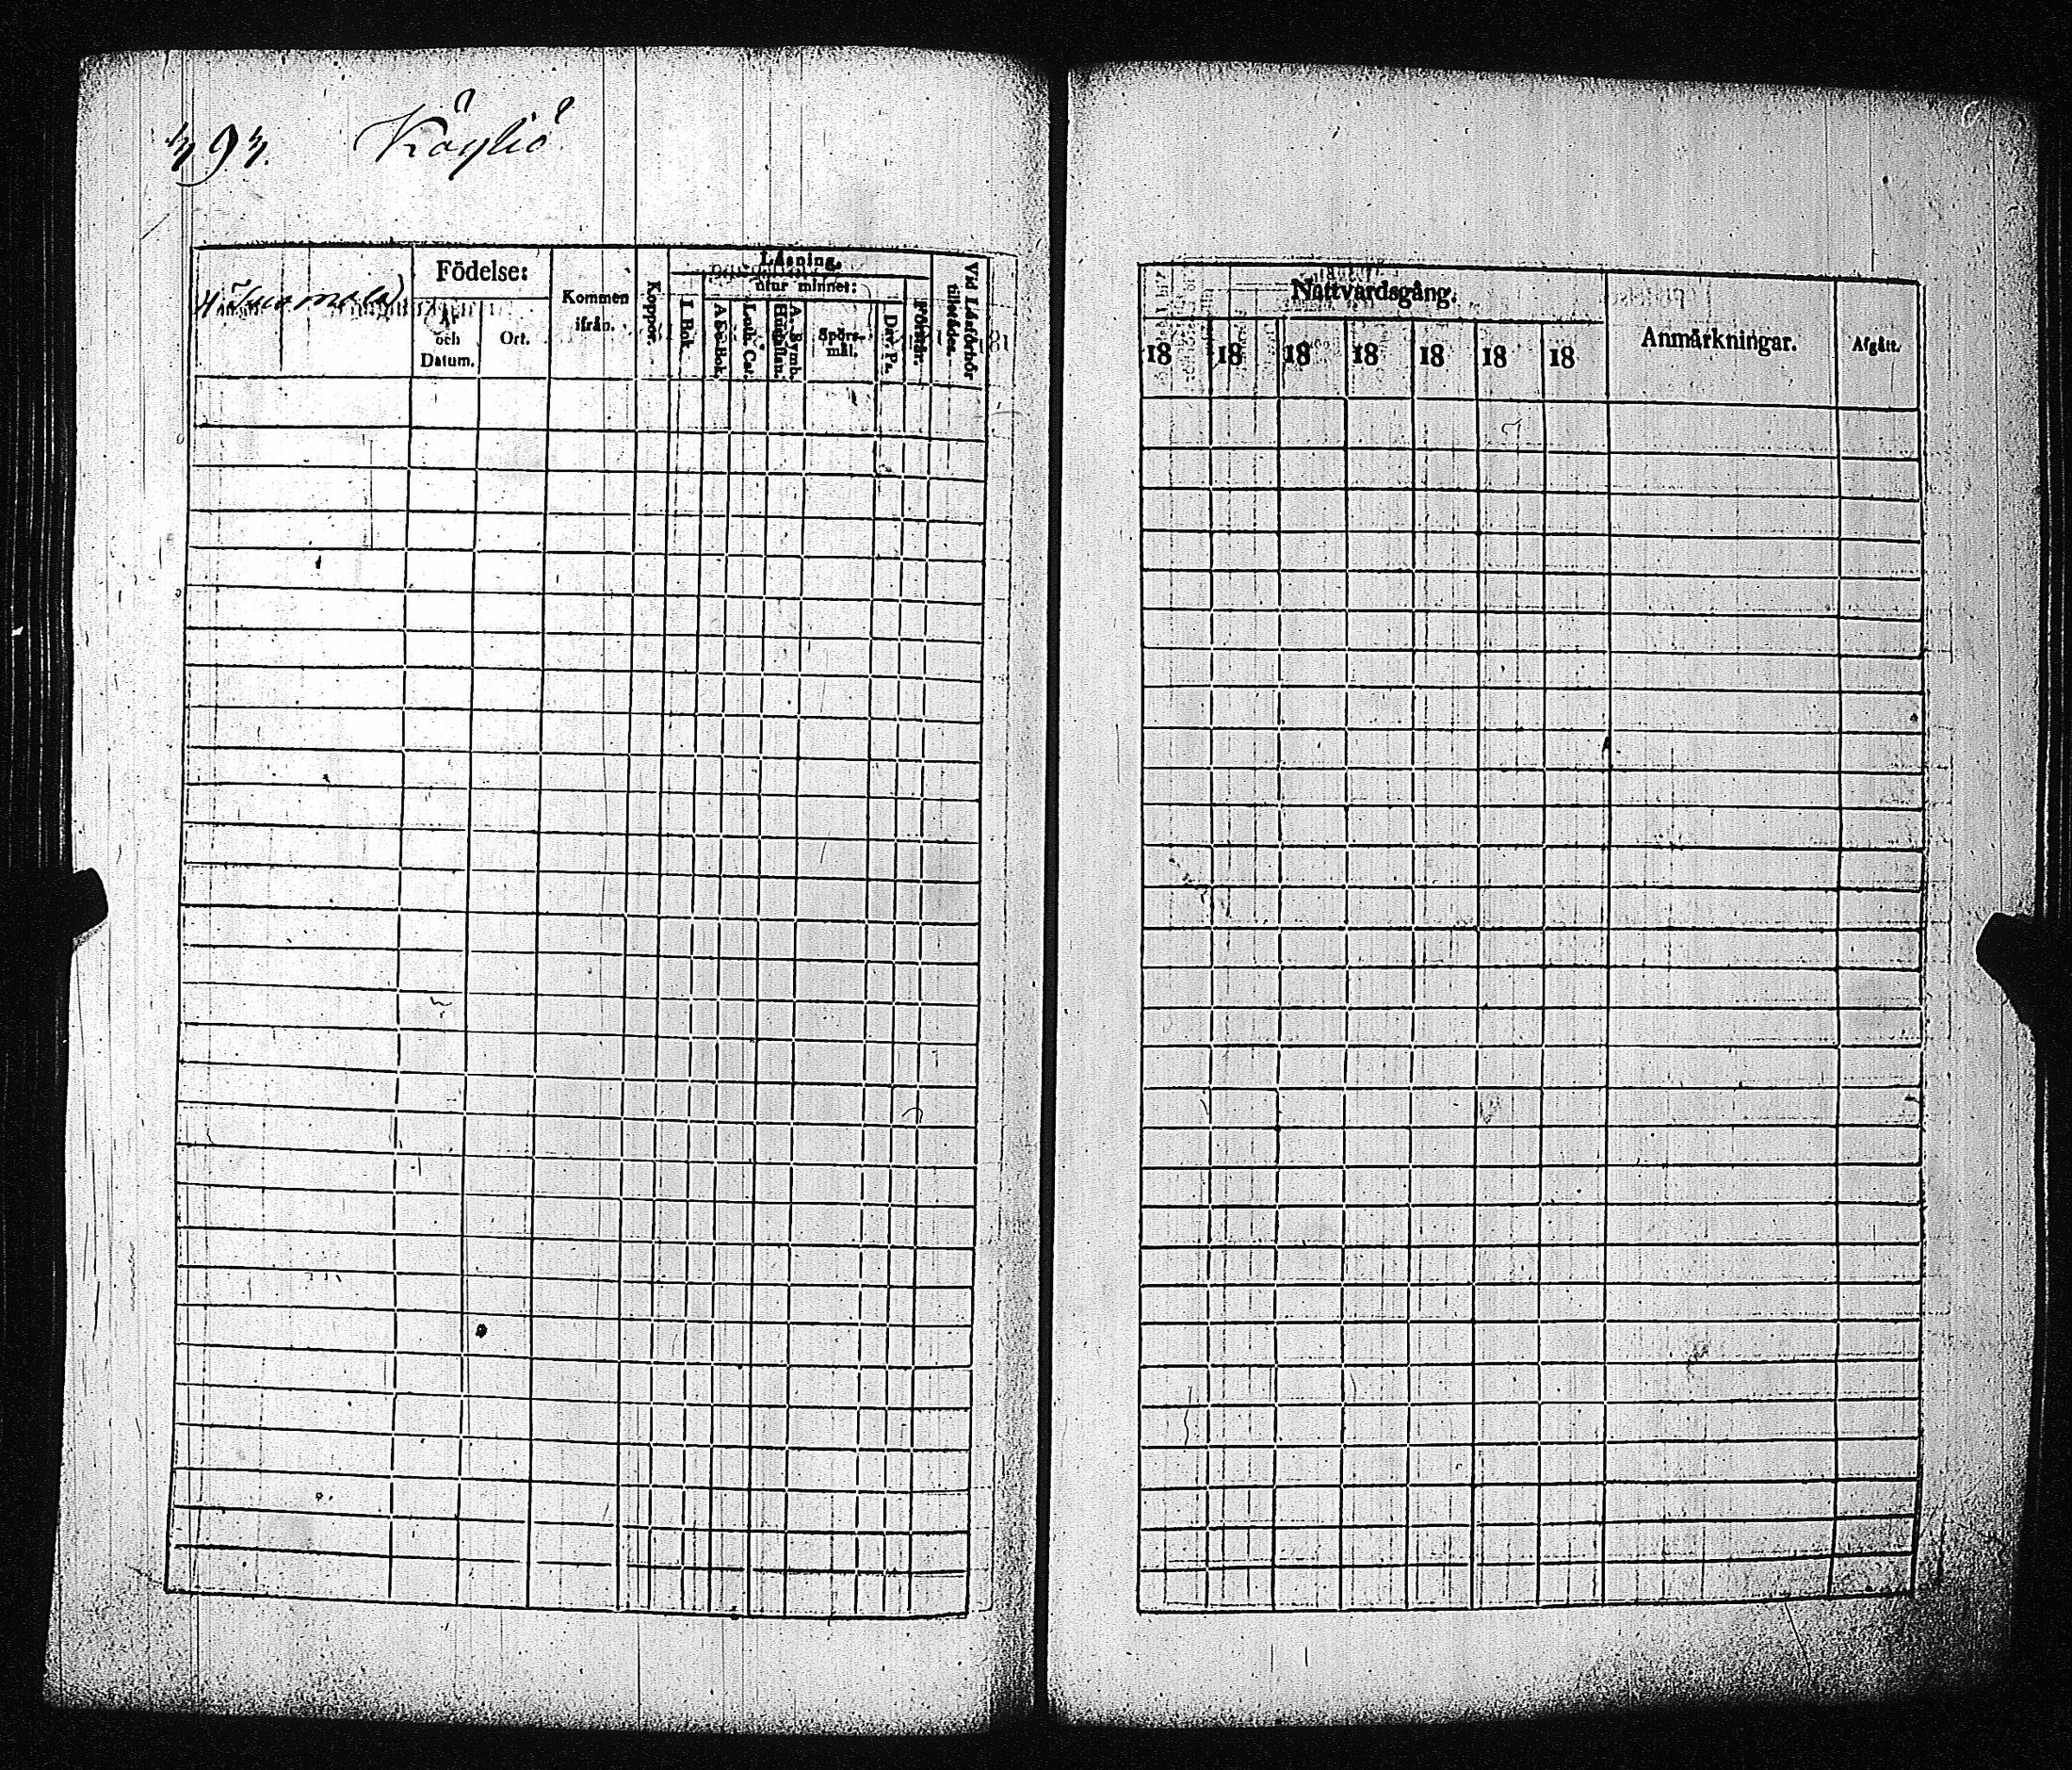 Kågliö
Födelse:
År och Datum.
Ort.
Kommen ifrån.
Koppor.
Läsning.
utur minnet:
I Bok.
A B C-Bok.
Luth. Cat.
A. Symb. Hustaflan.
Spörsmål.
Dav. Ps.
Förstår.
Vid Läsförhör tillstädes.
Nattvardsgång.
18 18 18 18 18 18 18
Anmärkningar.
Afgått.